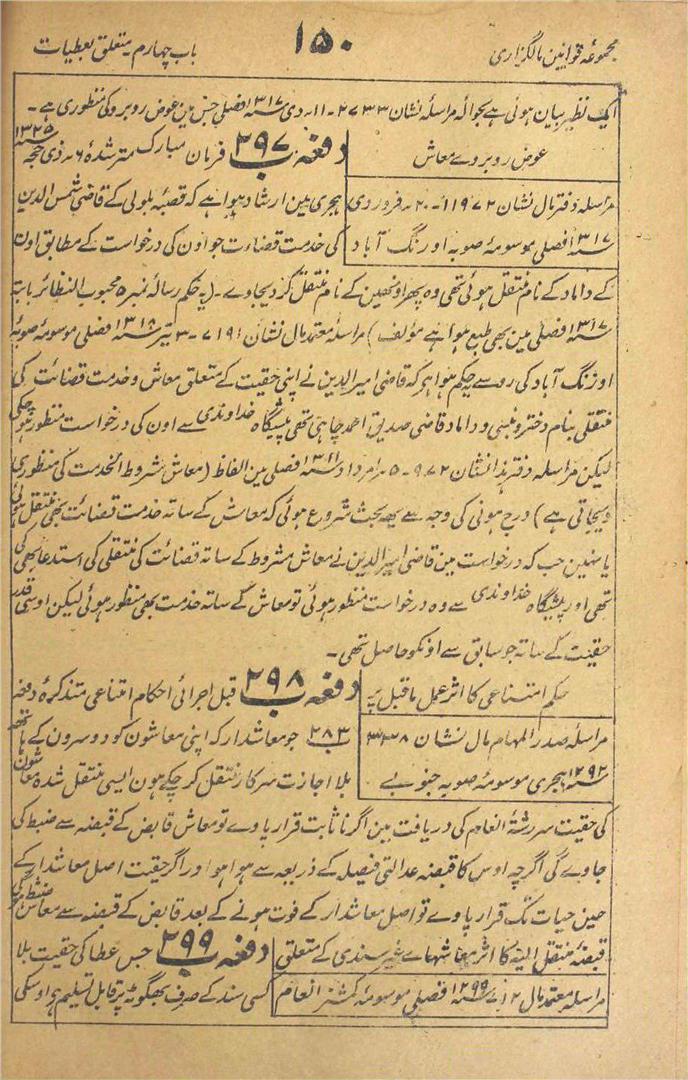 مجموعۂ قوانین مالگزاری
۱۵۰
باب چہارم۔ متعلق بعطیات
ایک نظیر بیان ہوئی ہے بحوالہ مراسلۂ نشان ۲۷۳۳ ۔ ۱۱۔ دی ۱۳۱۷ سنہ فصلی جس مین عوض روبرو کی منظوری ہے۔
عوض روبروے معاش
دفعہ ۲۹۷ ب فرمان مبارک مترشدۂ ۶۔ ذی حجہ ۱۳۲۵ سنہ
مراسلہ دفتر مال نشان ۱۱۹۷۲ ۔ ۲۰ ۔ فروردی
ہجری مین ارشاد ہوا ہے کہ قصبۂ بلولی کے قاضی شمس الدین
۱۳۱۷ سنہ فصلی موسومۂ صوبہ اورنگ آباد
کی خدمت قضاءت جو اون کی درخواست کے مطابق اون
کے داماد کے نام منتقل ہوئی تھی وہ پھر اونھین کے نام منتقل کر دیجاوے۔ (یہ حکم رسالہ نمبر ۵ محبوب النظائر بابتہ
۱۳۱۷ سنہ فصلی مین بھی طبع ہوا ہے مؤلف) مراسلہ معتمد مال نشان ۷۱۹۱ ۔ ۳ تیر ۱۳۱۸ سنہ فصلی موسومۂ صوبہ
اورنگ آباد کی رو سے یہ حکم ہوا ہر کہ قاضی امیر الدین نے اپنی حقیت کے متعلق معاش و خدمت قضائت کی
منتقلی بنام دختر و متبنی و داماد قاضی صدیق احمد چاہی تھی پیشگاہ خداوندی سے اون کی درخواست منظور ہو چکی
لیکن مراسلہ دفتر ہذا نشان ۹۷۲ ۔ ۵ ۔ امرداد ۱۳۱۱ سنہ فصلی مین الفاظ (معاش مشروط الخدمت کی منظوری
دیجاتی ہے) درج ہونی کی وجہ سے یہ بحث شروع ہوئی کہ معاش کے ساتہ خدمت قضائت بھی منتقل ہوئی
یا نہین جب کہ درخواست مین قاضی امیر الدین نے معاش مشروط کے ساتہ قضائت کی منتقلی کی استدعا بھی کی
تھی اور پیشگاہ خداوندی سے وہ درخواست منظور ہوئی تو معاش کے ساتہ خدمت بھی منظور ہوئی لیکن اوسی قدر
حقیت کے ساتہ جو سابق سے اونکو حاصل تھی۔
حکم امتناعی کا اثر عمل ماقبل پر
دفعہ ۲۹۸ ب قبل اجرائی احکام امتناعی متذکرۂ دفعہ
مراسلہ صدر المہام مال نشان ۳۳۳۸
۲۸۳ ب جو معاشدار کہ اپنی معاشون کو دوسرون کے ہاتھ
۱۲۹۲ سنہ ہجری موسومۂ صوبہ جنوبی
بلا اجازت سرکار منتقل کر چکے ہون ایسی منتقل شدہ معاشون
کی حقیت سررشتۂ انعام کی دریافت مین اگر نا ثابت قرار پاوے تو معاش قابض کے قبضہ سے ضبط کی
جاوے گی اگرچہ اوس کا قبضہ عدالتی فیصلہ کے ذریعہ سے ہوا ہو اور اگر حقیت اصل معاشدار کے
حین حیات تک قرار پاوے تو اصل معاشدار کے فوت ہونے کے بعد قابض کے قبضہ سے معاش ضبط کی
قبضۂ منتقل الیہ کا اثر معاشہاے غیر سندی کے متعلق
دفعہ ۲۹۹ ب جس عطا کی حقیت بلا
مراسلہ معتمد مال ۱۲ ۱۲۹۹ سنہ فصلی موسومۂ کمشنر انعام
کسی سند کے صرف بھگوٹہ پر قابل تسلیم ہو اوسکی